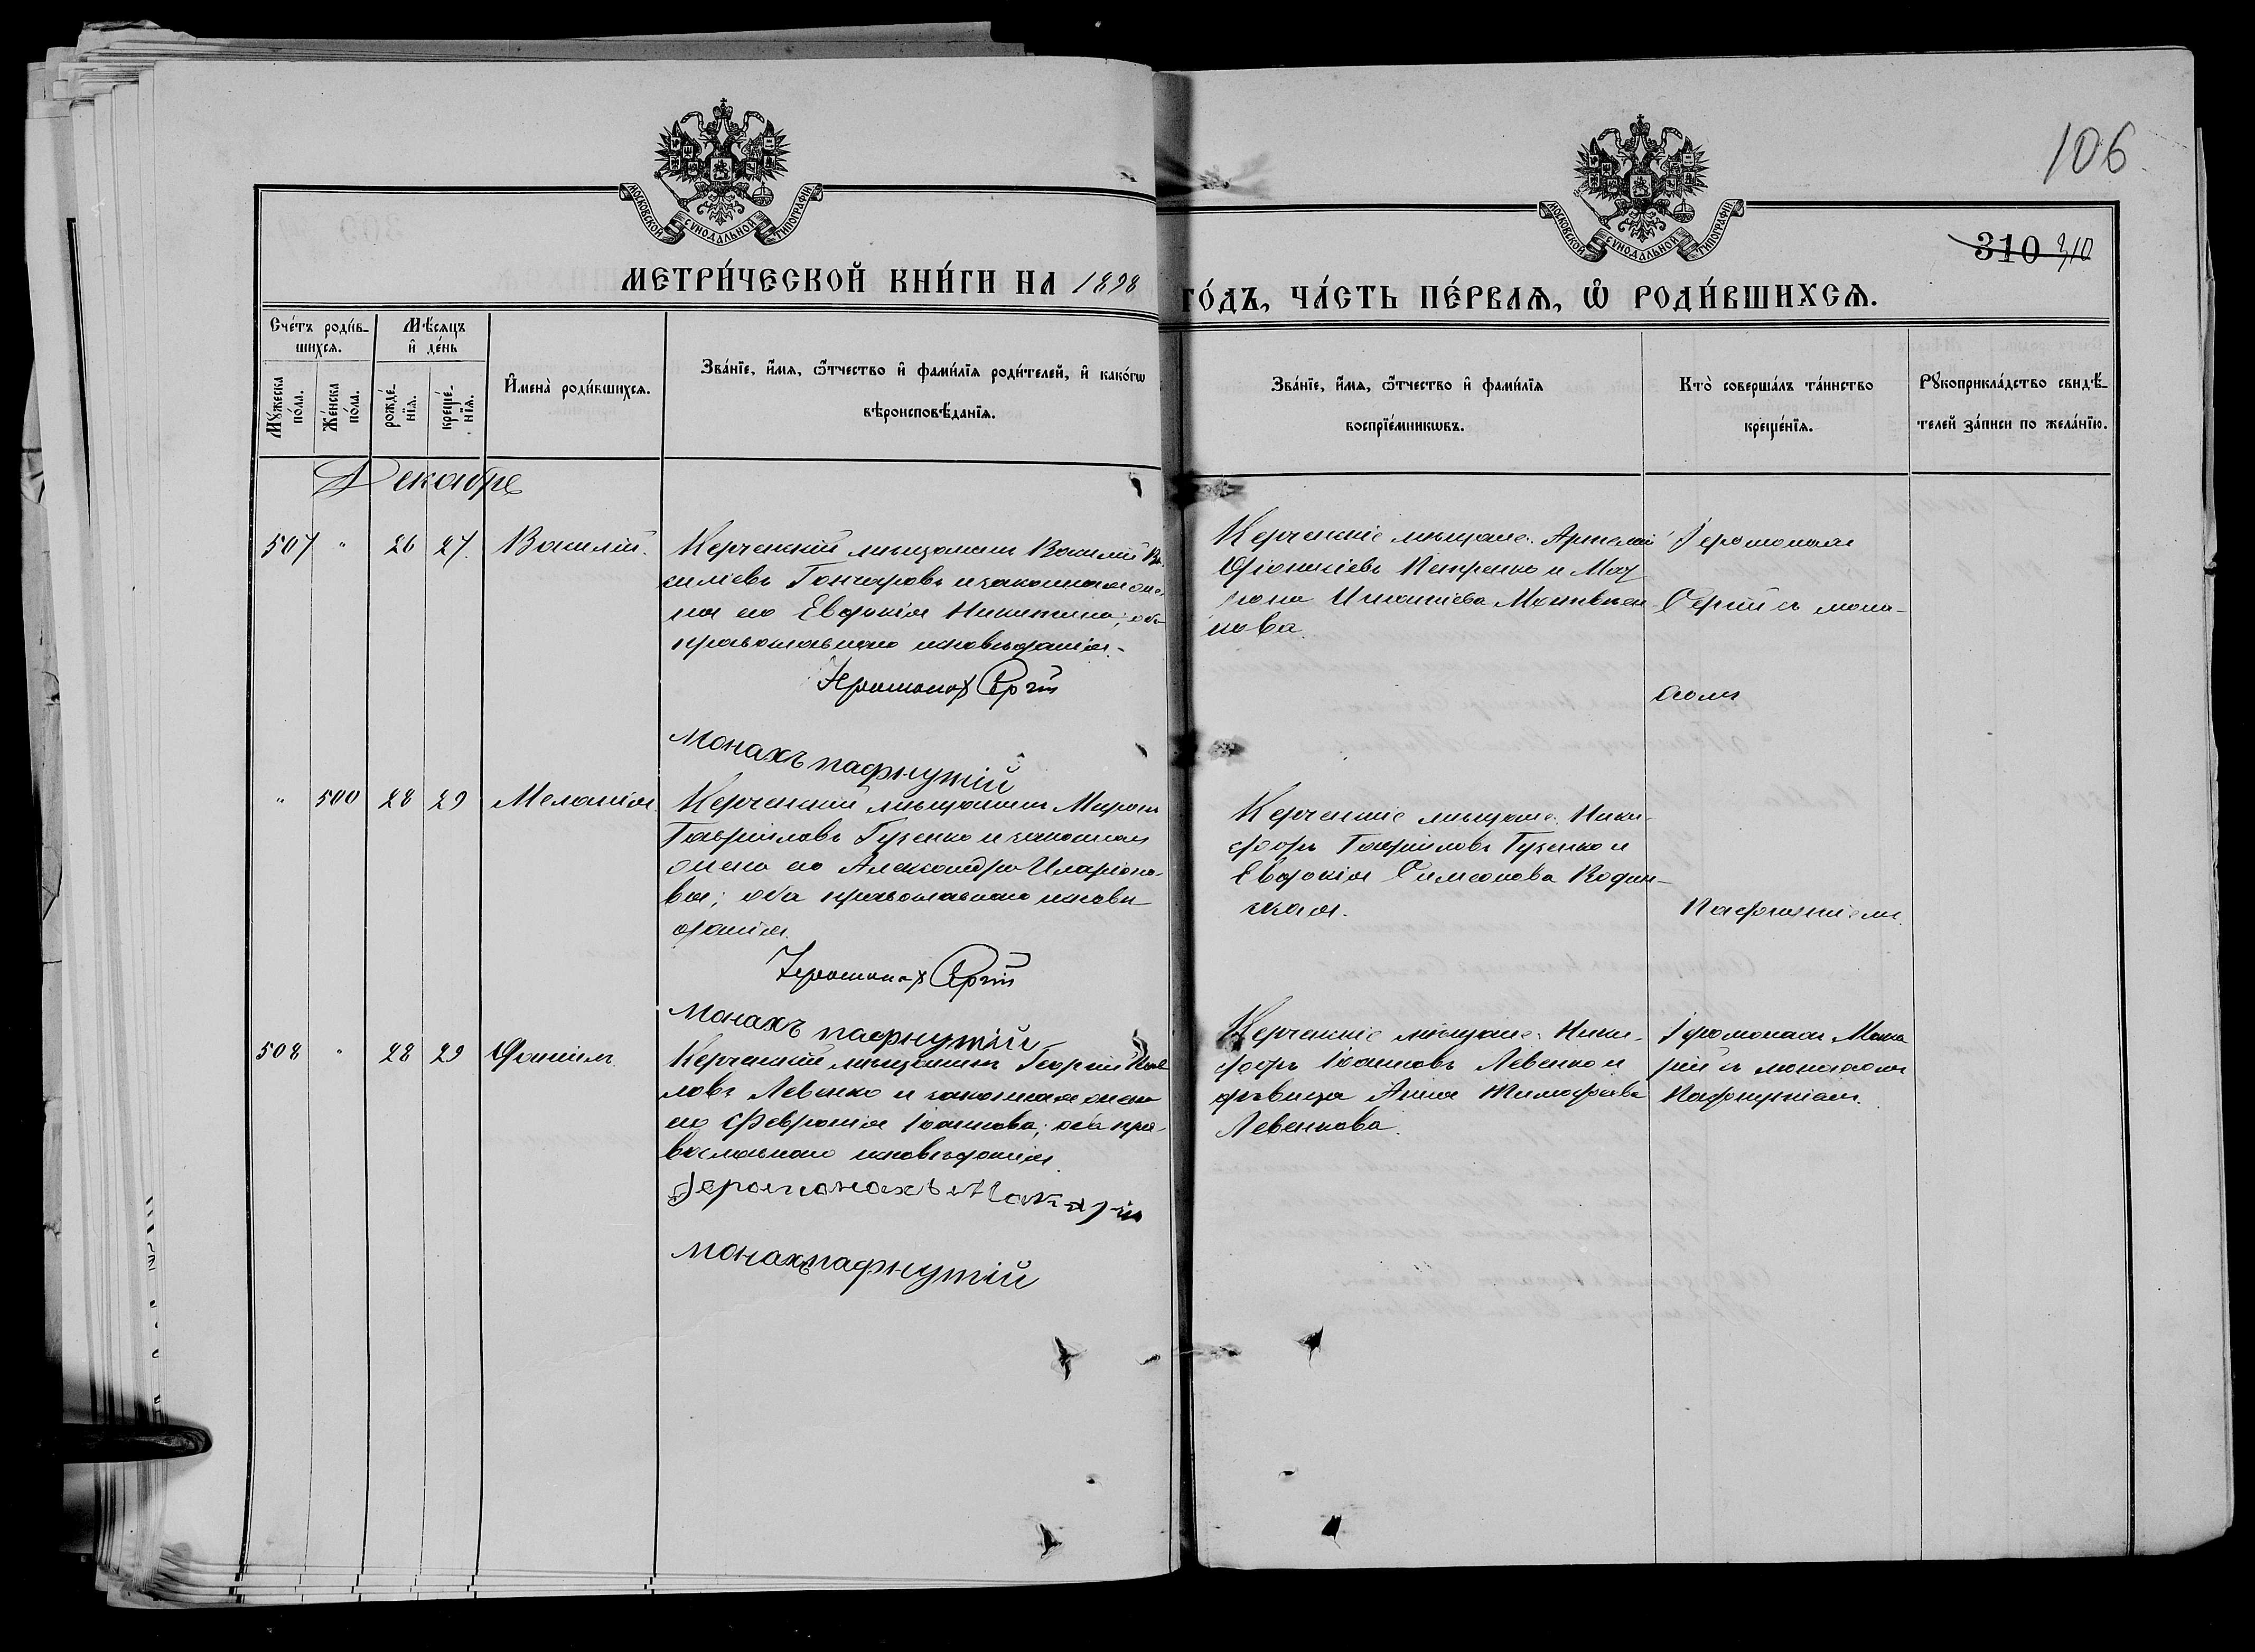 106
310 310
МОСКОВСКОЙ СУНОДАЛЬНОЙ ТИПОГРАФИИ
МОСКОВСКОЙ СУНОДАЛЬНОЙ ТИПОГРАФИИ
МЕТРИ́ЧЕСКОЙ КНИ́ГИ НА 1898
ГО́ДЪ, ЧА́СТЬ ПЕ́РВАѦ, Ѽ РОДИ́ВШИХСѦ.
Сче́тъ роди́в-
шихсѧ.
Мꙋ́жеска
по́ла.
Же́нска
по́ла.
Мѣ́сѧцъ
и҆ де́нь
рожде́-
нїѧ.
креще́-
нїѧ.
И҆мена̀ роди́вшихсѧ.
Зва́нїе, и҆́мѧ, ѻ҆́тчество и҆ фами́лїѧ роди́телей, и҆ како́гѡ
вѣроисповѣ́данїѧ.
Зва́нїе, и҆́мѧ, ѻ҆́тчество и҆ фами́лїѧ
воспрїе́мникѡвъ.
Кто̀ соверша́лъ та́инство
креще́нїѧ.
Рꙋкоприкла́дство свидѣ́-
телей за́писи по жела́нїю.
Декабрь
507 " 26 27. Василій.
Керченскій мѣщанинъ Василій Ва-
силіевъ Гончаровъ и законная же-
на его Евдокія Никитина; оба
православнаго исповѣданія.
Іеромонахъ Сергій
Монахъ пафнутій
Керченскіе мѣщане: Артемій
Діонисіевъ Петренко и Мат
рона Игнатіева Матвѣен
кова.
Іеромонахъ
Сергій съ мона-
хомъ
" 500 28 29 Меланія
Керченскій мѣщанинъ Миронъ
Гавріиловъ Гузенко и законная
жена его Александра Иларіоно-
ва; оба православнаго исповѣ
данія.
Іеромонахъ Сергій
Монахъ пафнутій
Керченскіе мѣщане: Ники-
форъ Гавріиловъ Гузенко и
Евдокія Симеонова
Пафнутіемъ.
508 " 28 29 Даніилъ.
Керченскій мѣщанинъ Георгій
Левенко и законная жена
его Февронія Іоаннова; оба пра-
вославнаго исповѣданія.
Іеромонахъ Макарій
монахъ пафнутій
Керченскіе мѣщане: Ники-
форъ Іоанновъ Левенко и
дѣвица Анна Тимофеева
Левенкова.
Іеромонахъ Мака
рій съ монахомъ
Пафнутіемъ.